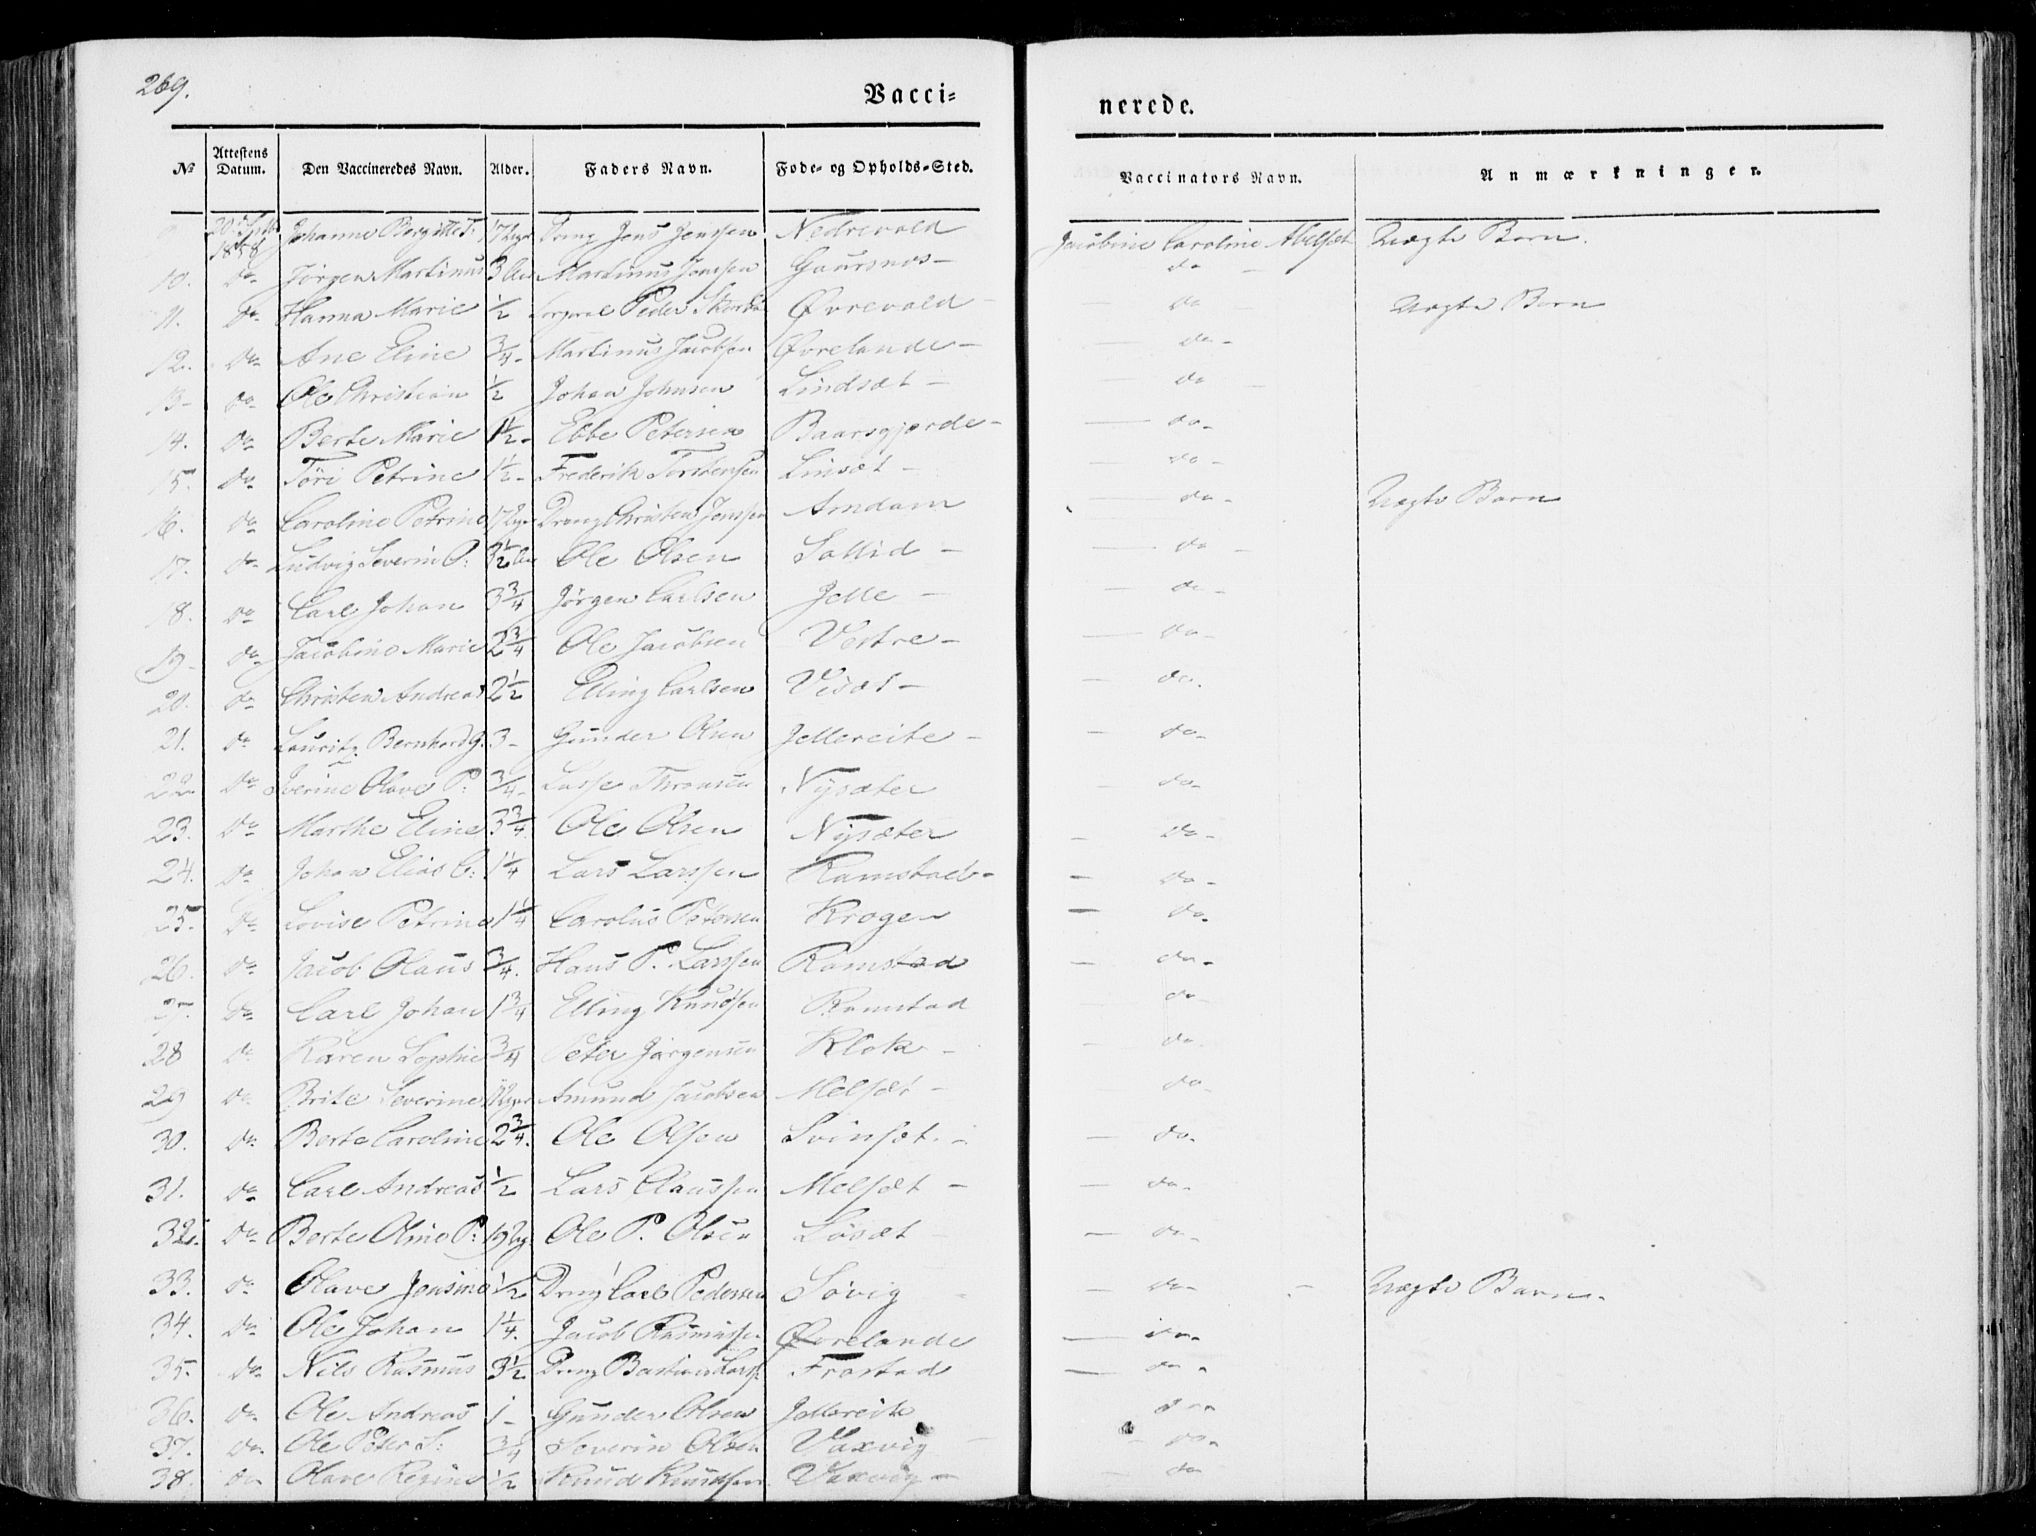 269.
Vacci=
nerede.
No Attestens Datum. Den Vaccineredes Navn. Alder. Faders Navn. Føde- og Opholds-Sted. Vaccinators Navn. Anmærkninger.
9 20de Septbr 1858 Johanne Bergitte T: Dreng Jens Jenssen Nedrevold Jacobine Caroline Abelset Uægte Barn.
10. do Jørgen Martinus 3 Martinus Jonssen Gaursnes - do -
11. do Hanna Marie 1/2 Peder Øvrevold - do Uægte Barn
12. do Ane Eline 3/4 - Martinus Jacobsen Øvrelande - - do -
13 - do Ole Christian 1/2 Johan Johnsen Lindsæt - - do -
14. do Berte Marie 1 1/2 - Ebbe Petersen Baarsgjærde - - do -
15. do Töri Petrine 1 1/2 - Frederik Torstensen Linsæt - - do -
16. do Caroline Petrine Dreng Christen Jenssen Amdam - do - Uægte Barn
17. do Ludvig Severin P: 3 1/2 Ole Olsen Sollid - - do -
18. do Carl Johan 3 3/4 Jørgen Carlsen Jelle - - do -
19 - do Jacobine Marie 2 3/4 Ole Jacobsen Vestre - - do -
20. do Christen Andreas 2 1/2 Elling Carlsen Visæt - - do.
21. do Lauritz Bernhard G. 3 - Gunder Olsen Jellereite - - do -
22 do Iverine Olave P. 3/4 - Lasse Nysæter - do -
23. do Marthe Eline 3 3/4 Ole Olsen Nysæter - do -
24. do Johan Elias C: 1 1/4 Lars Larssen Ramstad - - do -
25. do Lovise Petrine 1 1/4 Carolus Petersen Kroge - - do -
26. do Jacob Olaus 3/4. Hans P. Larssen Ramstad - do -
27. do Carl Johan 1 3/4 Elling Knudsen Ramstad do -
28 do Karen Sophie 3/4 Peter Jørgensen Klok - - do.
29 do Brite Severine Amund Jacobsen Melsæt - do -
30. do Berte Caroline 2 3/4. Ole Olsen Svinsæt. - - do -
31. do Carl Andreas 1/2 Lars Claussen Melsæt - - do -
32. do Berte Oline P: Ole P. Olsen Løsæt - - do -
33. do Olave Jensine 1/2 Dreng Carl Pedersen Søvig - do - - Uægte Barn -
34. do Ole Johan 1 1/4. Jacob Rasmussen Øvrelande - do -
35. do Nils Rasmus 3 1/2 Dreng Bastian Larss. Frostad - do -
36. do Ole Andreas 1 - Gunder Olsen Jellereite do -
37. do Ole Peter S: 3/4 Severin Olsen Vaxvig - - do -
38. do Olave Regine 1/2 Knud Knudsen Vaxvig - - do